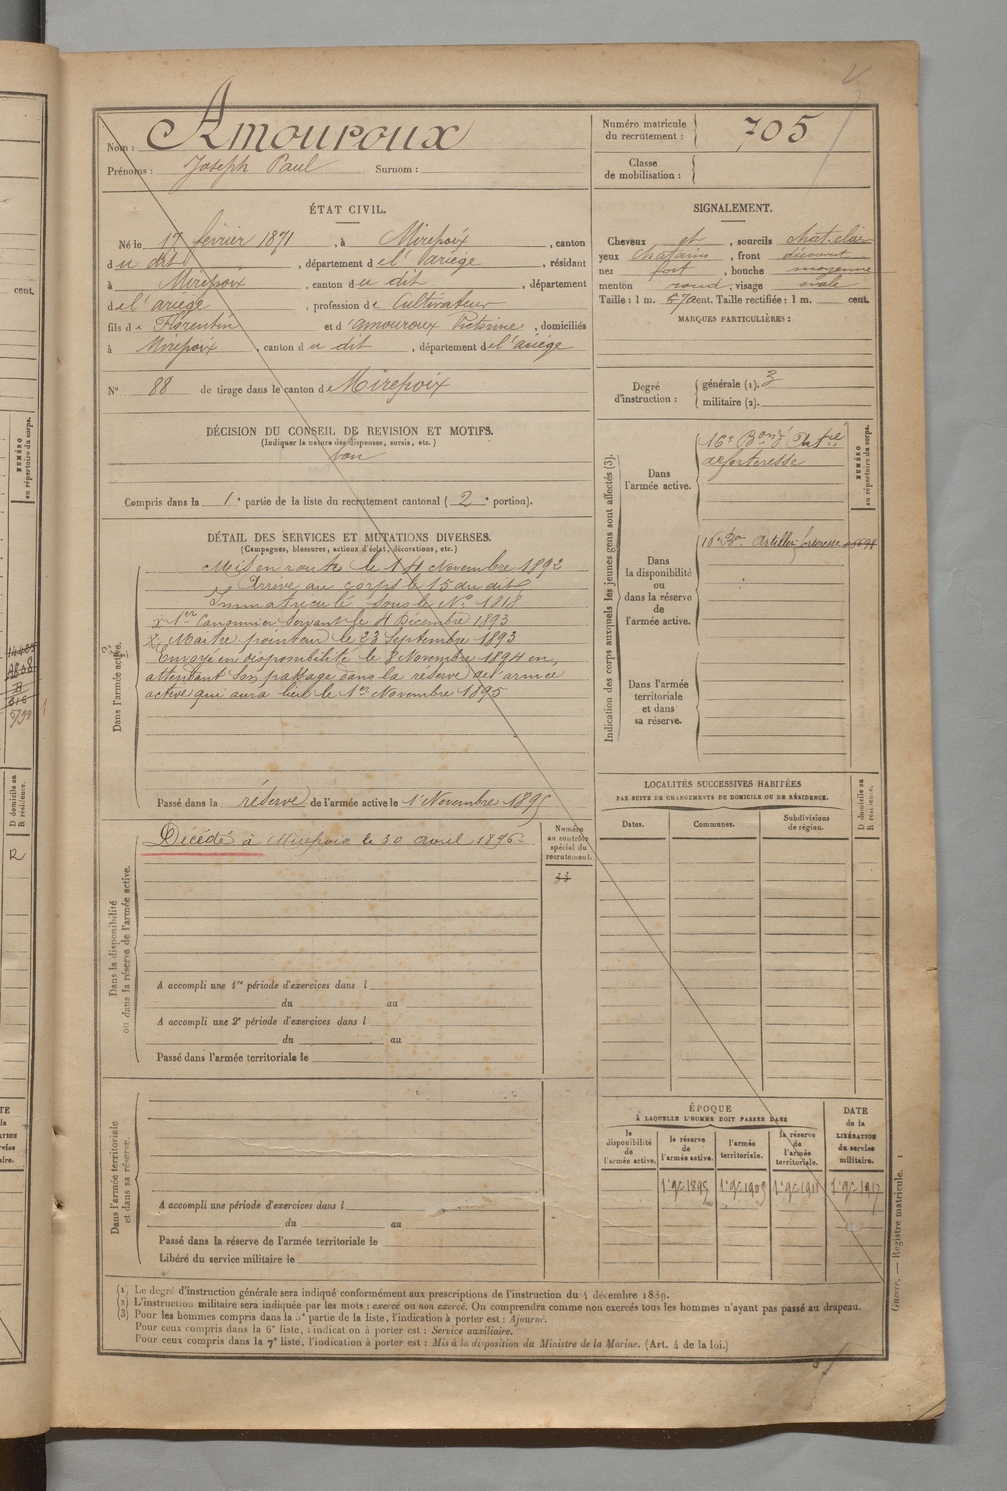 Nom : Amouroux
Prénoms : Joseph Paul Surnom :
Numéro matricule du recrutement : 705
Classe de mobilisation :
ÉTAT CIVIL.
Né le 17 février 1871, à Mirepoix, canton
du dit, département de l'Variège, résidant
à Mirepoix, canton du dit, département
de l'ariège, profession de Cultivateur
fils de Florentin et d'amouroux Victorine, domiciliés
à Mirepoix, canton du dit, département de l'ariège
N° 88 de tirage dans le canton de Mirepoix
SIGNALEMENT.
Cheveux et, sourcils chat. clair
yeux chatains, front découvert
nez fort, bouche moyenne
menton rond, visage ovale
Taille : 1 m. cent. Taille rectifiée : 1 m. cent.
MARQUES PARTICULIÈRES :
Degré d'instruction : générale (1). 3
militaire (2).
DÉCISION DU CONSEIL DE REVISION ET MOTIFS.
(Indiquer la nature des dispenses, sursis, etc.)
bon
Compris dans la 1e partie de la liste du recrutement cantonal (2e portion).
DÉTAIL DES SERVICES ET MUTATIONS DIVERSES.
(Campagnes, blessures, actions d'éclat, décorations, etc.)
Dans l'armée active.
Mis en route le 14 Novembre 1892
Arrivé au corps le 15 du dit
Immatriculé sous le N° 1818
1er Canonnier Servant le 4 Décembre 1893
Maitre pointeur le 23 Septembre 1893
Envoyé en disponibilité le 8 Novembre 1894 en
attendant son passage dans la réserve de l'armée
active qui aura lieu le 1er Novembre 1895
Passé dans la réserve de l'armée active le 1er Novembre 1895
Indication des corps auxquels les jeunes gens sont affectés (3).
Dans l'armée active.
16e Bon d'Artrie
de forteresse
Dans la disponibilité ou dans la réserve de l'armée active.
16e Bon Artillerie forteresse
Dans l'armée territoriale et dans sa réserve.
NUMÉRO au répertoire du corps.
Dans la disponibilité ou dans la réserve de l'armée active.
Décédé à Mirepoix le 30 avril 1896.
Numéro au contrôle spécial du recrutement.
33
A accompli une 1re période d'exercices dans l
du au
A accompli une 2e période d'exercices dans l
du au
Passé dans l'armée territoriale le
LOCALITÉS SUCCESSIVES HABITÉES
PAR SUITE DE CHANGEMENTS DE DOMICILE OU DE RÉSIDENCE.
Dates. Communes. Subdivisions de région.
D domicile ou R résidence.
Dans l'armée territoriale et dans sa réserve.
A accompli une période d'exercices dans l
du au
Passé dans la réserve de l'armée territoriale le
Libéré du service militaire le
ÉPOQUE
À LAQUELLE L'HOMME DOIT PASSER DANS
la disponibilité de l'armée active.
la réserve de l'armée active.
l'armée territoriale.
la réserve de l'armée territoriale.
DATE de la LIBÉRATION du service militaire.
1er 9e 1895 1er 9e 1905 1er 9e 1911 1er 9e 1917
Guerre. — Registre matricule. 1
(1) Le degré d'instruction générale sera indiqué conformément aux prescriptions de l'instruction du 4 décembre 1889.
(2) L'instruction militaire sera indiquée par les mots : exercé ou non exercé. On comprendra comme non exercés tous les hommes n'ayant pas passé au drapeau.
(3) Pour les hommes compris dans la 5e partie de la liste, l'indication à porter est : Ajourné.
Pour ceux compris dans la 6e liste, l'indication à porter est : Service auxiliaire.
Pour ceux compris dans la 7e liste, l'indication à porter est : Mis à la disposition du Ministre de la Marine. (Art. 4 de la loi.)